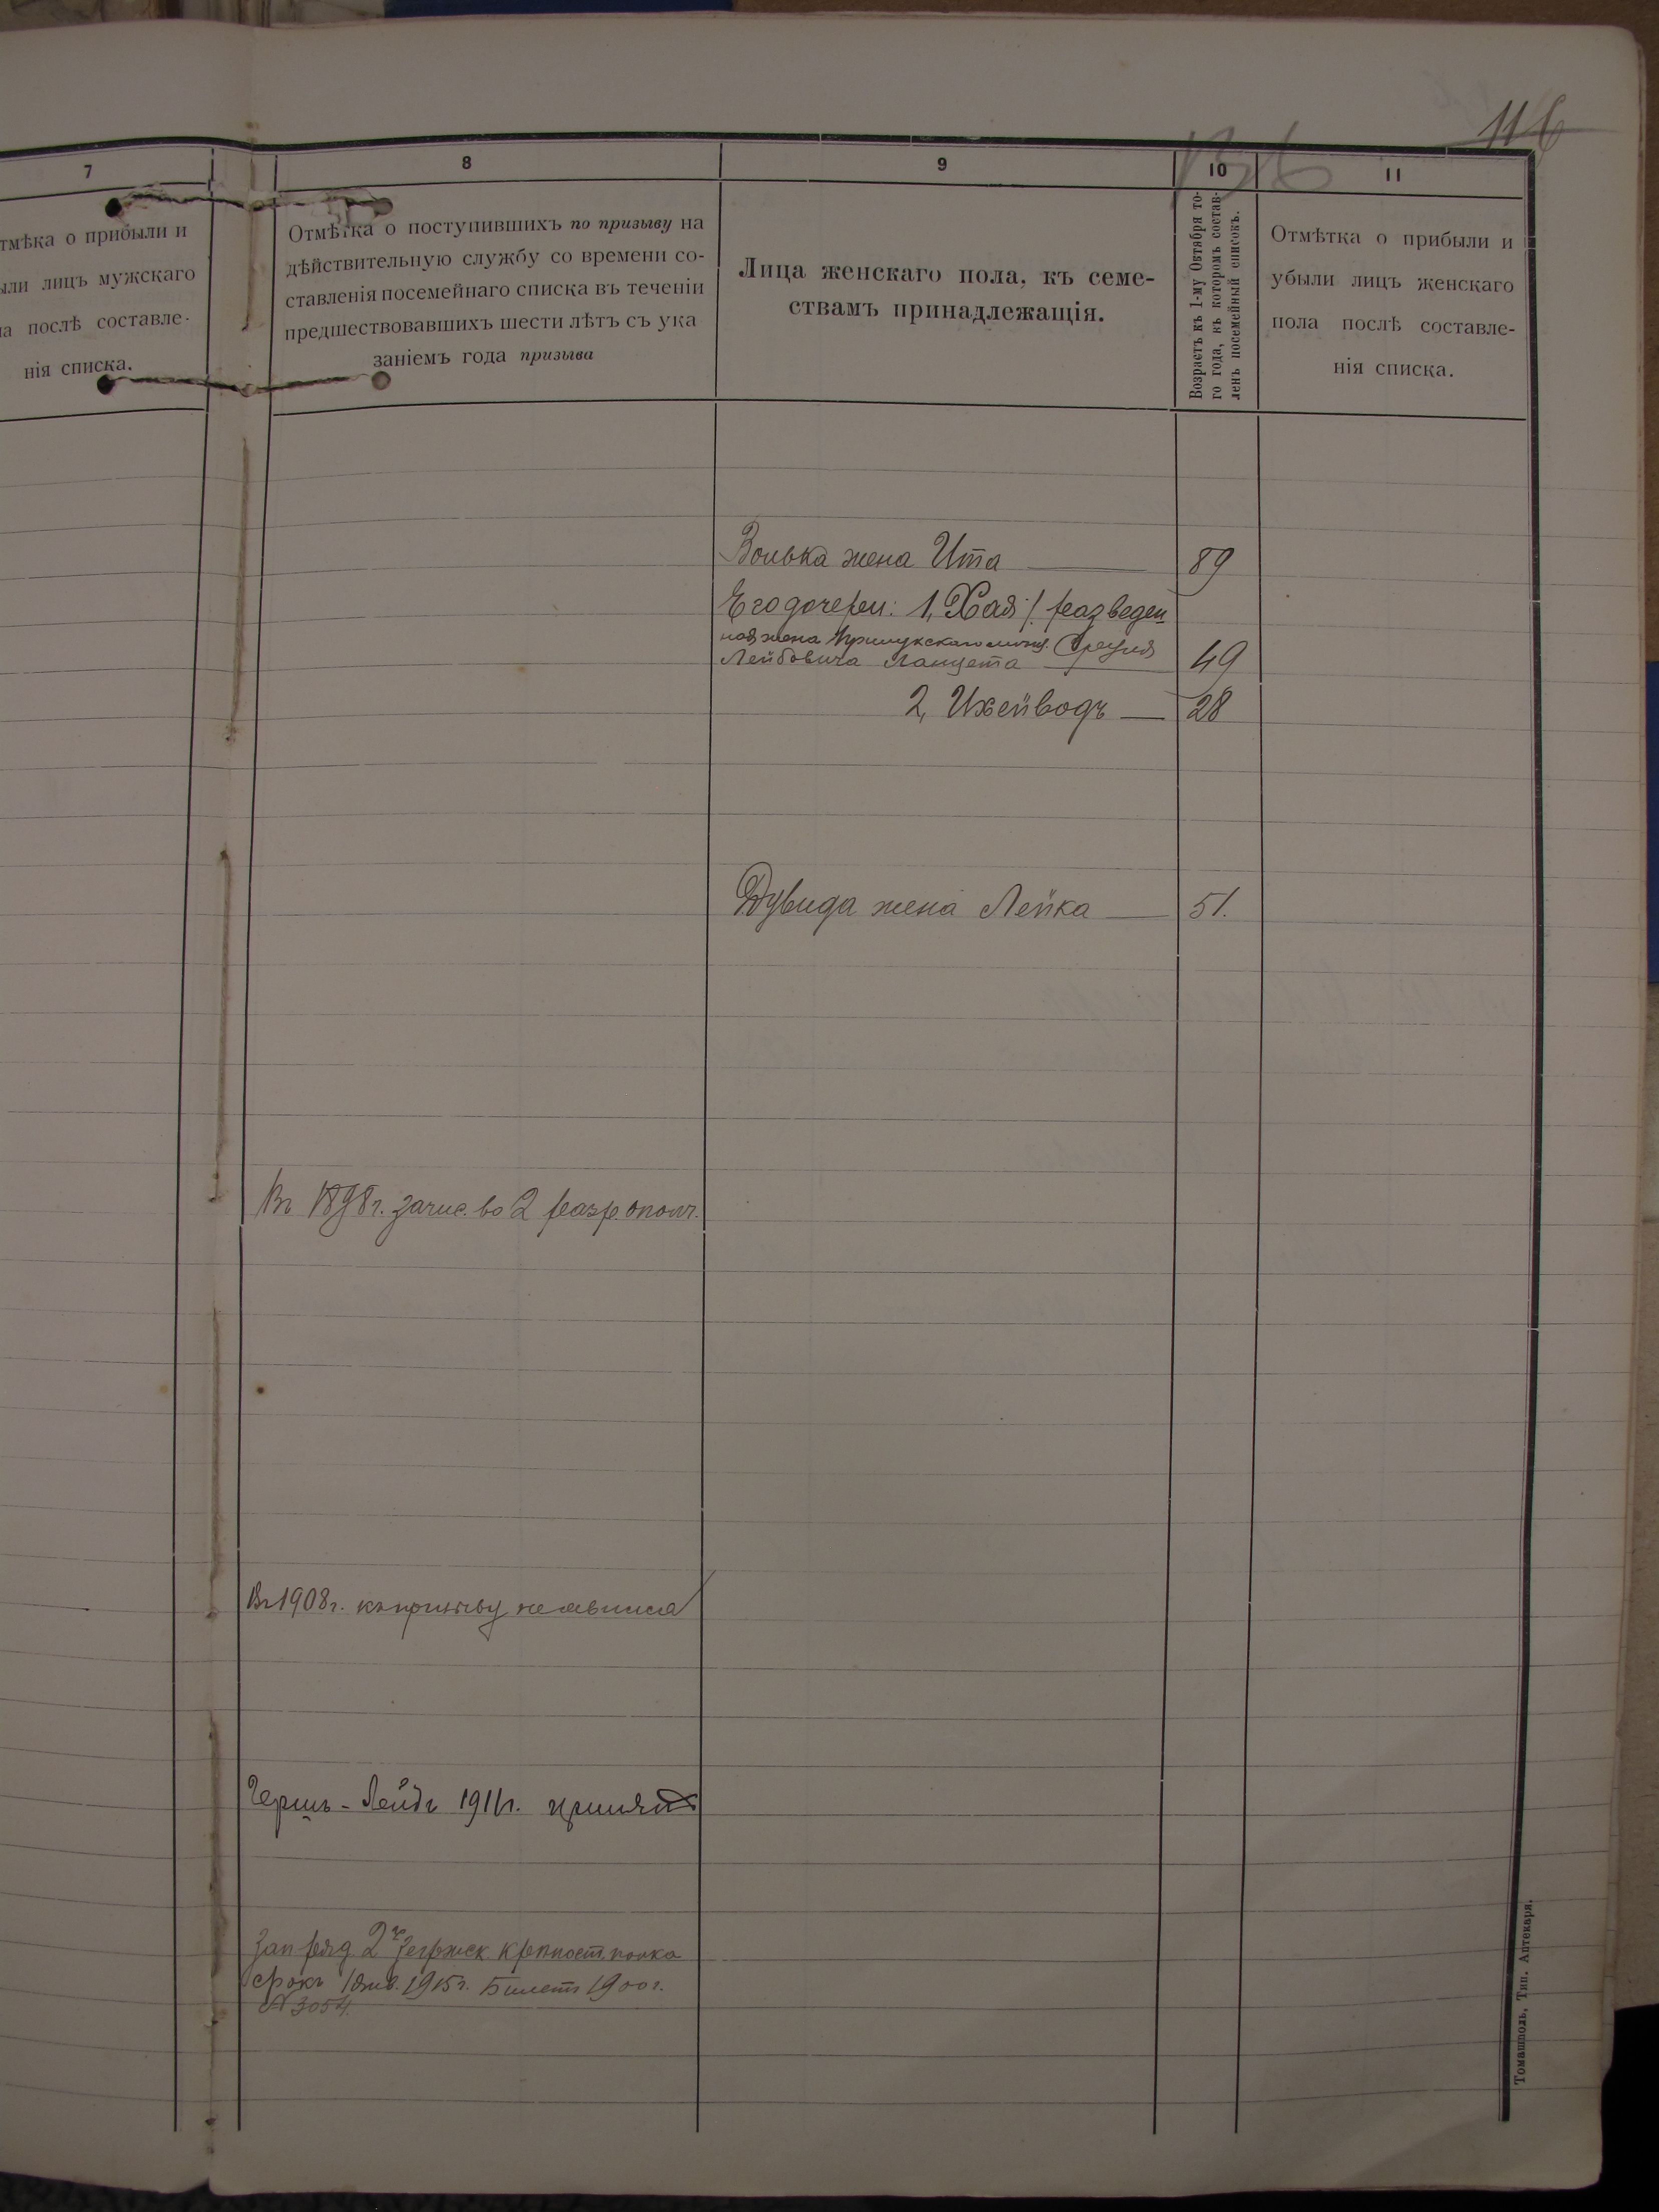 116
7
8
9
10
11
тмѣка о прибыли и
ыли лицъ мужскаго
ла послѣ составле-
нія списка.
Отмѣтка о поступившихъ по призыву на
дѣйствительную службу со времени со-
ставленія посемейнаго списка въ теченіи
предшествовавшихъ шести лѣтъ съ ука
заніемъ года призыва
Лица женскаго пола, къ семе-
ствамъ принадлежащія.
Возрастъ къ 1-му Октября то-
го года, къ которомъ состав-
ленъ посемейный списокъ.
Отмѣтка о прибыли и
убыли лицъ женскаго
пола послѣ составле-
нія списка.
Волька жена Ита 89
Его дочери: 1, Хая /. разведен
ная жена
Лейбовича 49
2, Ихейводъ 28
Дувида жена Лейка 51.
Въ 1898 г. зачис. во 2 разр. ополч.
Въ 1908 г. къ призыву не явился
Герш-Лейбъ 1911 г. принятъ
Зап ряд 2го Зегржск. крѣпост. полка
срокъ 1 янв. 1915 г. Билетъ 1900 г.
№ 3054.
Томашполь, Тип. Аптекаря.